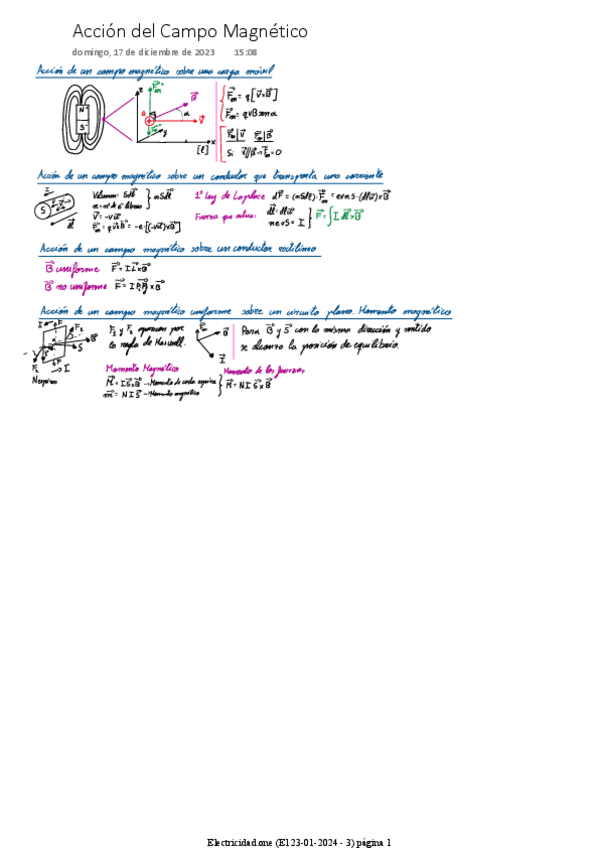 Acción del Campo Magnético
domingo, 17 de diciembre de 2023 15:08
Acción de un campo magnético sobre una carga móvil
N
S
z
B⃗
F⃗m = q[v⃗×B⃗]
α
v⃗
F⃗m = qvB senα
y
x
[t]
Acción de un campo magnético sobre un conductor que transporta una corriente
Volumen: Sdl
1ª Ley de Laplace
Fuerza que actúa:
F⃗ = ∫I dl⃗×B⃗
Acción de un campo magnético sobre un conductor rectilíneo
B⃗ uniforme F⃗ = I L⃗×B⃗
B⃗ no uniforme
Acción de un campo magnético uniforme sobre un circuito plano. Momento magnético
F₁ y F₂ aparecen por
la regla de Maxwell.
Para B⃗ y S⃗ con la misma dirección y sentido
se alcanza la posición de equilibrio.
Momento Magnético
Momento de las fuerzas
M⃗ = I S⃗×B⃗ → Momento de cada espira
m⃗ = N I S⃗ → Momento magnético
M⃗ = N I S⃗×B⃗
N espiras
Electricidad.one (E123-01-2024 - 3) página 1